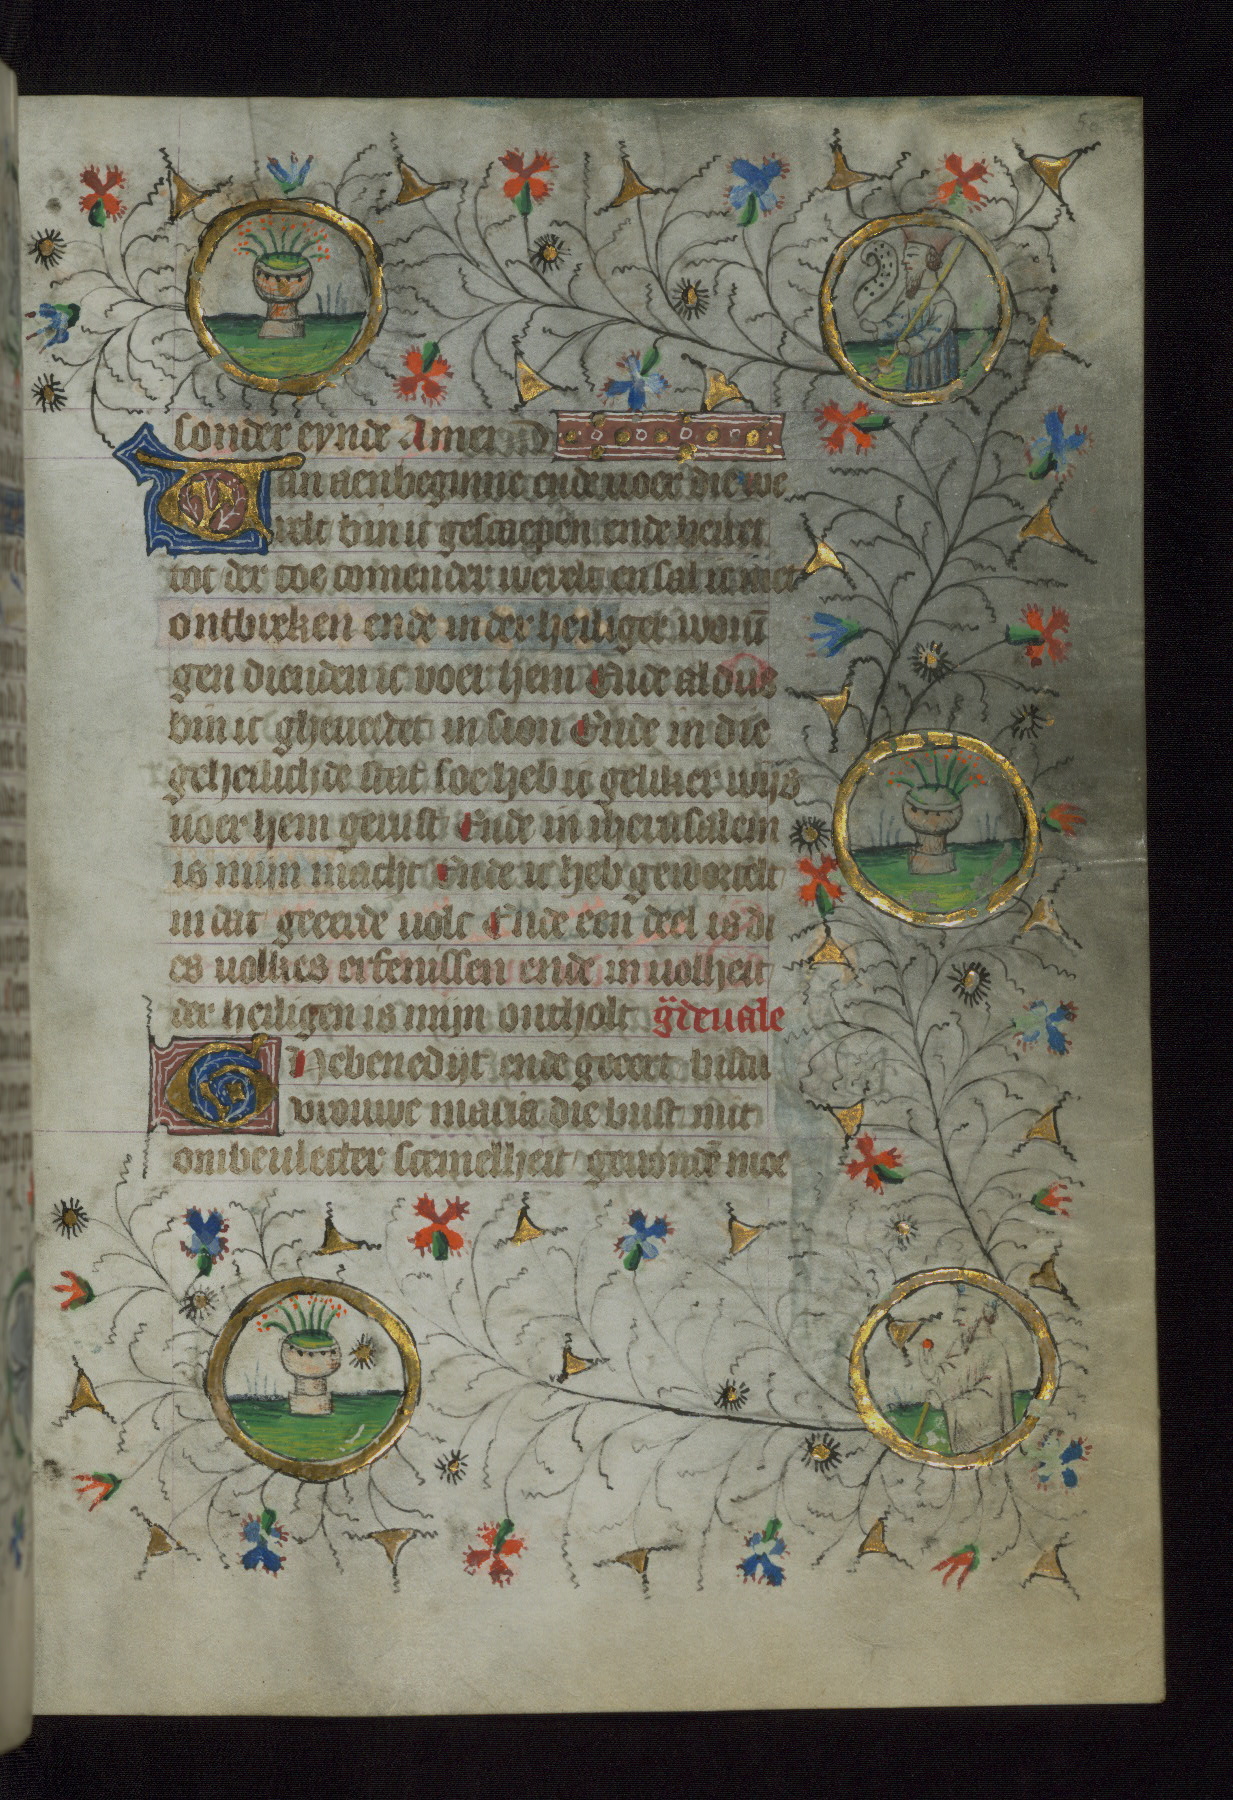 sonder eynde Amen
Van aenbeginne ende voer die we
relt bin ic gescaepen ende heuet
tot der toe comender werelt en sal ic niet
ontbreken ende in der heiliger wonū
gen dienden ic voer hem Ende aldus
bin ic gheuestet in sion Ende in die
geheilichde stat soe heb ic geliker wijs
voer hem gerust Ende in iherusalem
is mijn macht Ende ic heb gewortelt
in dat geerde volc Ende een deel is di
es volkes erfenissen ende in volheit
der heiligen is mijn ontholt
Gebenedijt ende geeert bistu
vrouwe maria die bist mit
ombeulecter scemelheit geuondē moe